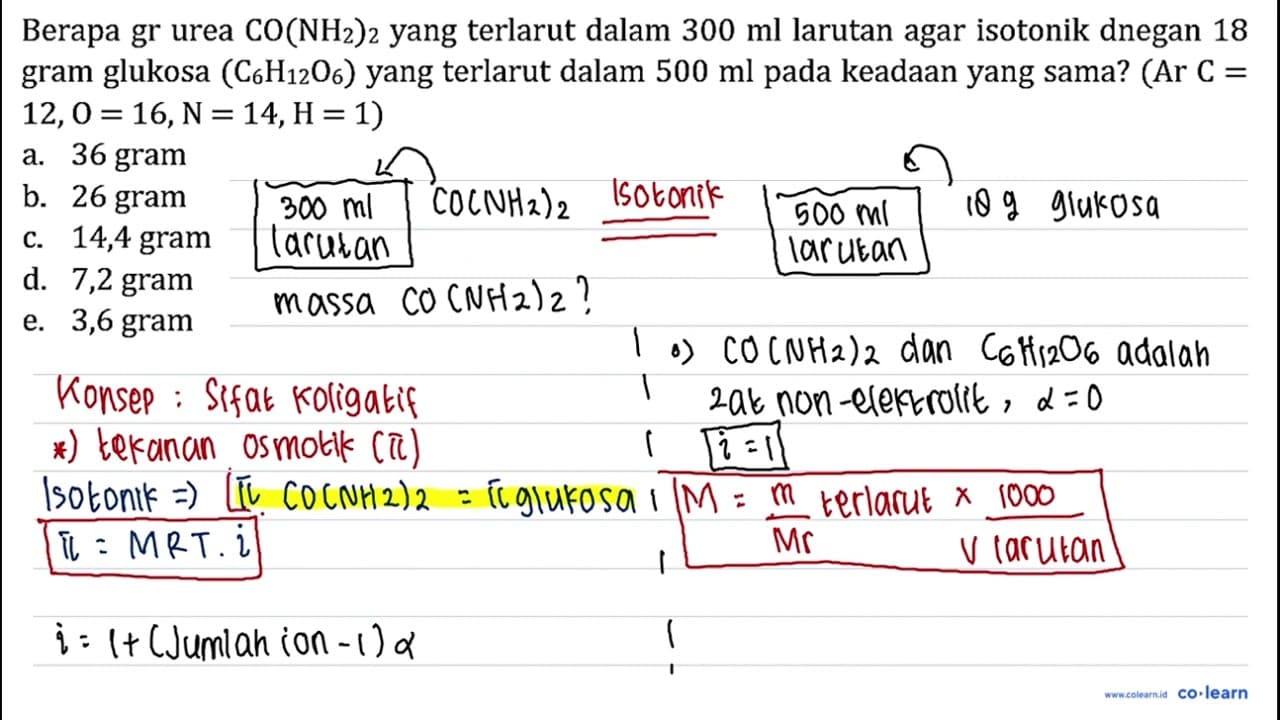 Berapa gr urea CO(NH₂)₂ yang terlarut dalam 300 ml larutan agar isotonik dnegan 18
gram glukosa (C₆H₁₂O₆) yang terlarut dalam 500 ml pada keadaan yang sama? (Ar C =
12, O = 16, N = 14, H = 1)
a. 36 gram
b. 26 gram
c. 14,4 gram
d. 7,2 gram
e. 3,6 gram
300 ml larutan
CO(NH2)2
Isotonik
500 ml larutan
18 g glukosa
massa CO(NH2)2?
Konsep : Sifat Koligatif
*) tekanan osmotik (π)
Isotonik => π CO(NH2)2 = π glukosa
π = MRT. i
i = 1 + (Jumlah ion - 1) α
•) CO(NH2)2 dan C6H12O6 adalah
zat non-elektrolit, α = 0
i = 1
M = m/Mr terlarut × 1000/V larutan
www.colearn.id co·learn